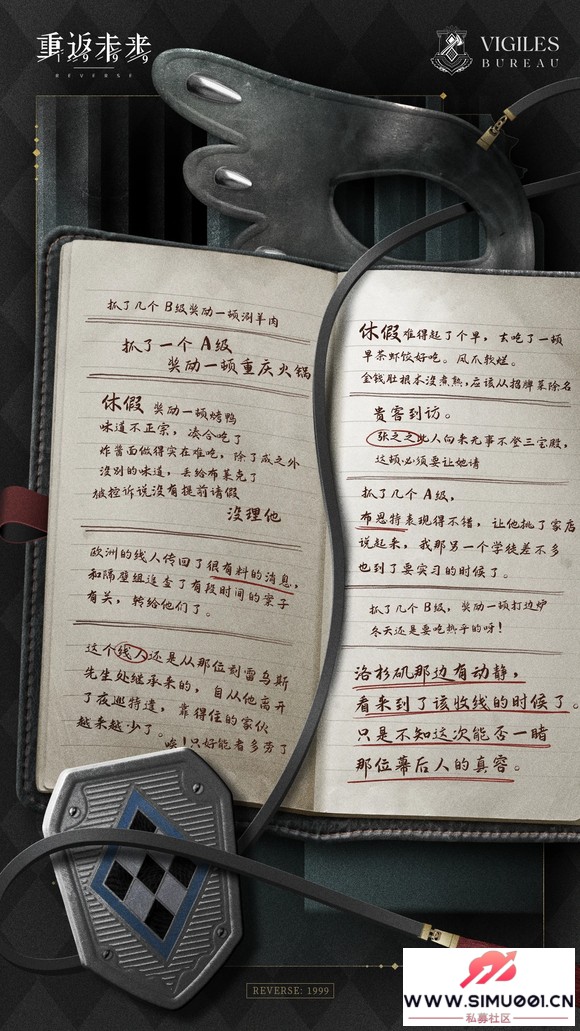 重返未来
REVERSE
VIGILES
BUREAU
抓了几个B级奖励一顿涮羊肉
抓了一个A级
奖励一顿重庆火锅
休假 奖励一顿烤鸭
味道不正宗，凑合吃了
炸酱面做得实在难吃，除了咸之外
没别的味道，丢给布莱克了
被控诉说没有提前请假
没理他
欧洲的线人传回了很有料的消息，
和隔壁组追查了有段时间的案子
有关，转给他们了。
这个线人还是从那位刻雷乌斯
先生处继承来的，自从他离开
了夜巡特遣，靠得住的家伙
越来越少了。
唉！只好能者多劳了
休假难得起了个早，去吃了一顿
早茶虾饺好吃。凤爪软烂。
金钱肚根本没煮熟，应该从招牌菜除名
贵客到访。
张之之此人向来无事不登三宝殿，
这顿必须要让她请
抓了几个A级，
布恩特表现得不错，让他挑了家店
说起来，我那另一个学徒差不多
也到了要实习的时候了。
抓了几个B级，奖励一顿打边炉
冬天还是要吃热乎的呀！
洛杉矶那边有动静，
看来到了该收线的时候了。
只是不知这次能否一睹
那位幕后人的真容。
REVERSE: 1999
WWW.SIMU001.CN
私募社区